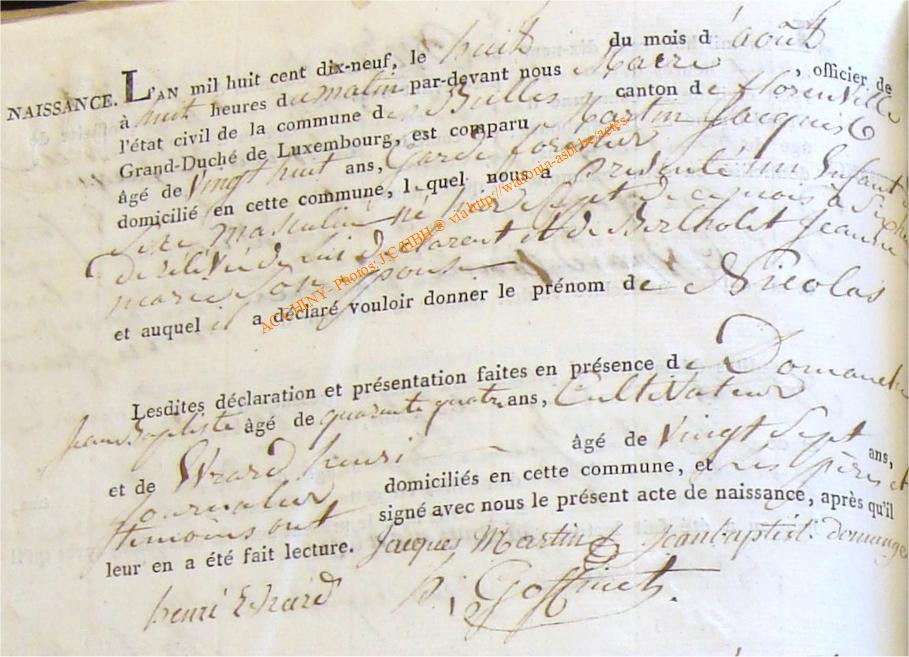 NAISSANCE. L'AN mil huit cent dix-neuf, le huit du mois d'août
à huit heures du matin par-devant nous Maire , officier de
l'état civil de la commune de Bulles canton de florenville
Grand-Duché de Luxembourg, est comparu Martin Jacques
âgé de Vingt huit ans, Garde forestier
domicilié en cette commune, lequel nous a présenté un Enfant
Sexe masculin né hier Sept de ce mois à Six h
de rélévée de lui déclarent et de Bertholet Jeanne
marie son épouse
et auquel il a déclaré vouloir donner le prénom de Nicolas
Lesdites déclaration et présentation faites en présence de Domange
jean Baptiste âgé de quarante quatre ans, Cultivateur
et de Evrard henri âgé de Vingt Sept ans,
journalier domiciliés en cette commune, et les pères et
témoins ont signé avec nous le présent acte de naissance, après qu'il
leur en a été fait lecture. jacques Martin jeanbaptist. domange
henri Evrard h. Goffinet.
ACCHINY - Photos J.C HBH ® via http://walonia-asbl.be/actes